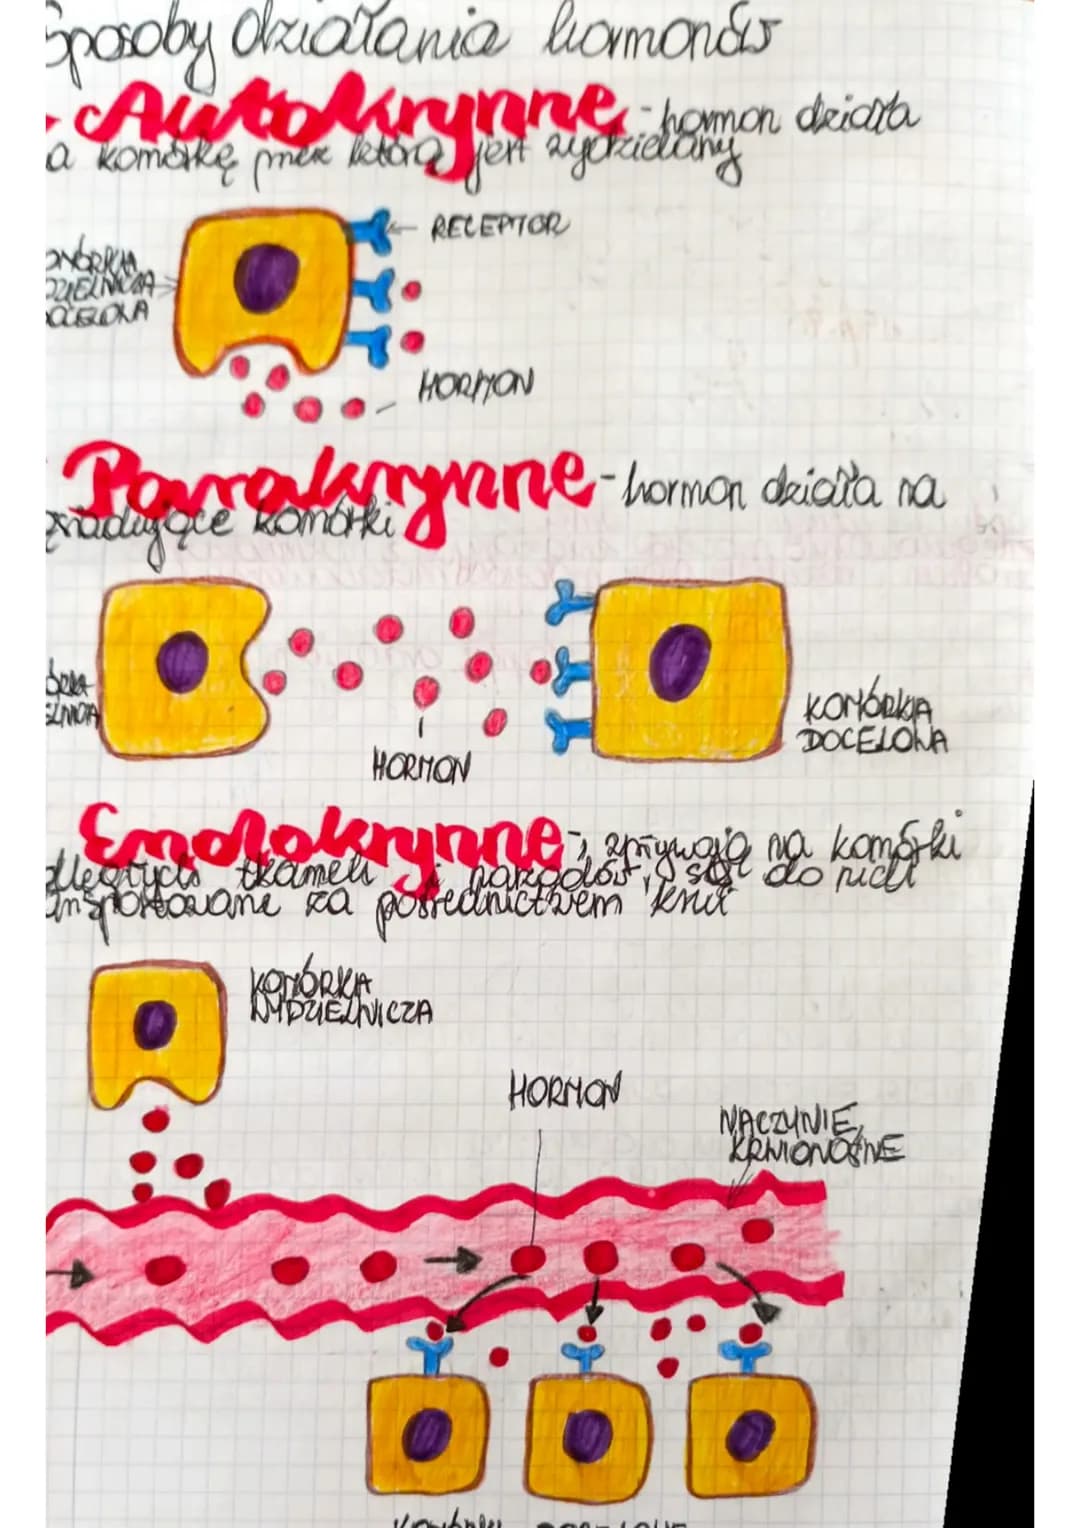 Sposoby działania hormonów
- Autokrynne - hormon działa
a komórkę przez którą jest wydzielany
RECEPTOR
OMÓRKA
DZIELNICZA
OCELOWA
HORMON
Parakrynne - hormon działa na
siadujące komórki
HORMON
KOMÓRKA
DOCELOWA
Endokrynne - wpływają na komórki
dległych tkanek i narządów, są do nich
ansportowane za pośrednictwem krwi
KOMÓRKA
WYDZIELNICZA
HORMON
NACZYNIE
KRWIONOŚNE